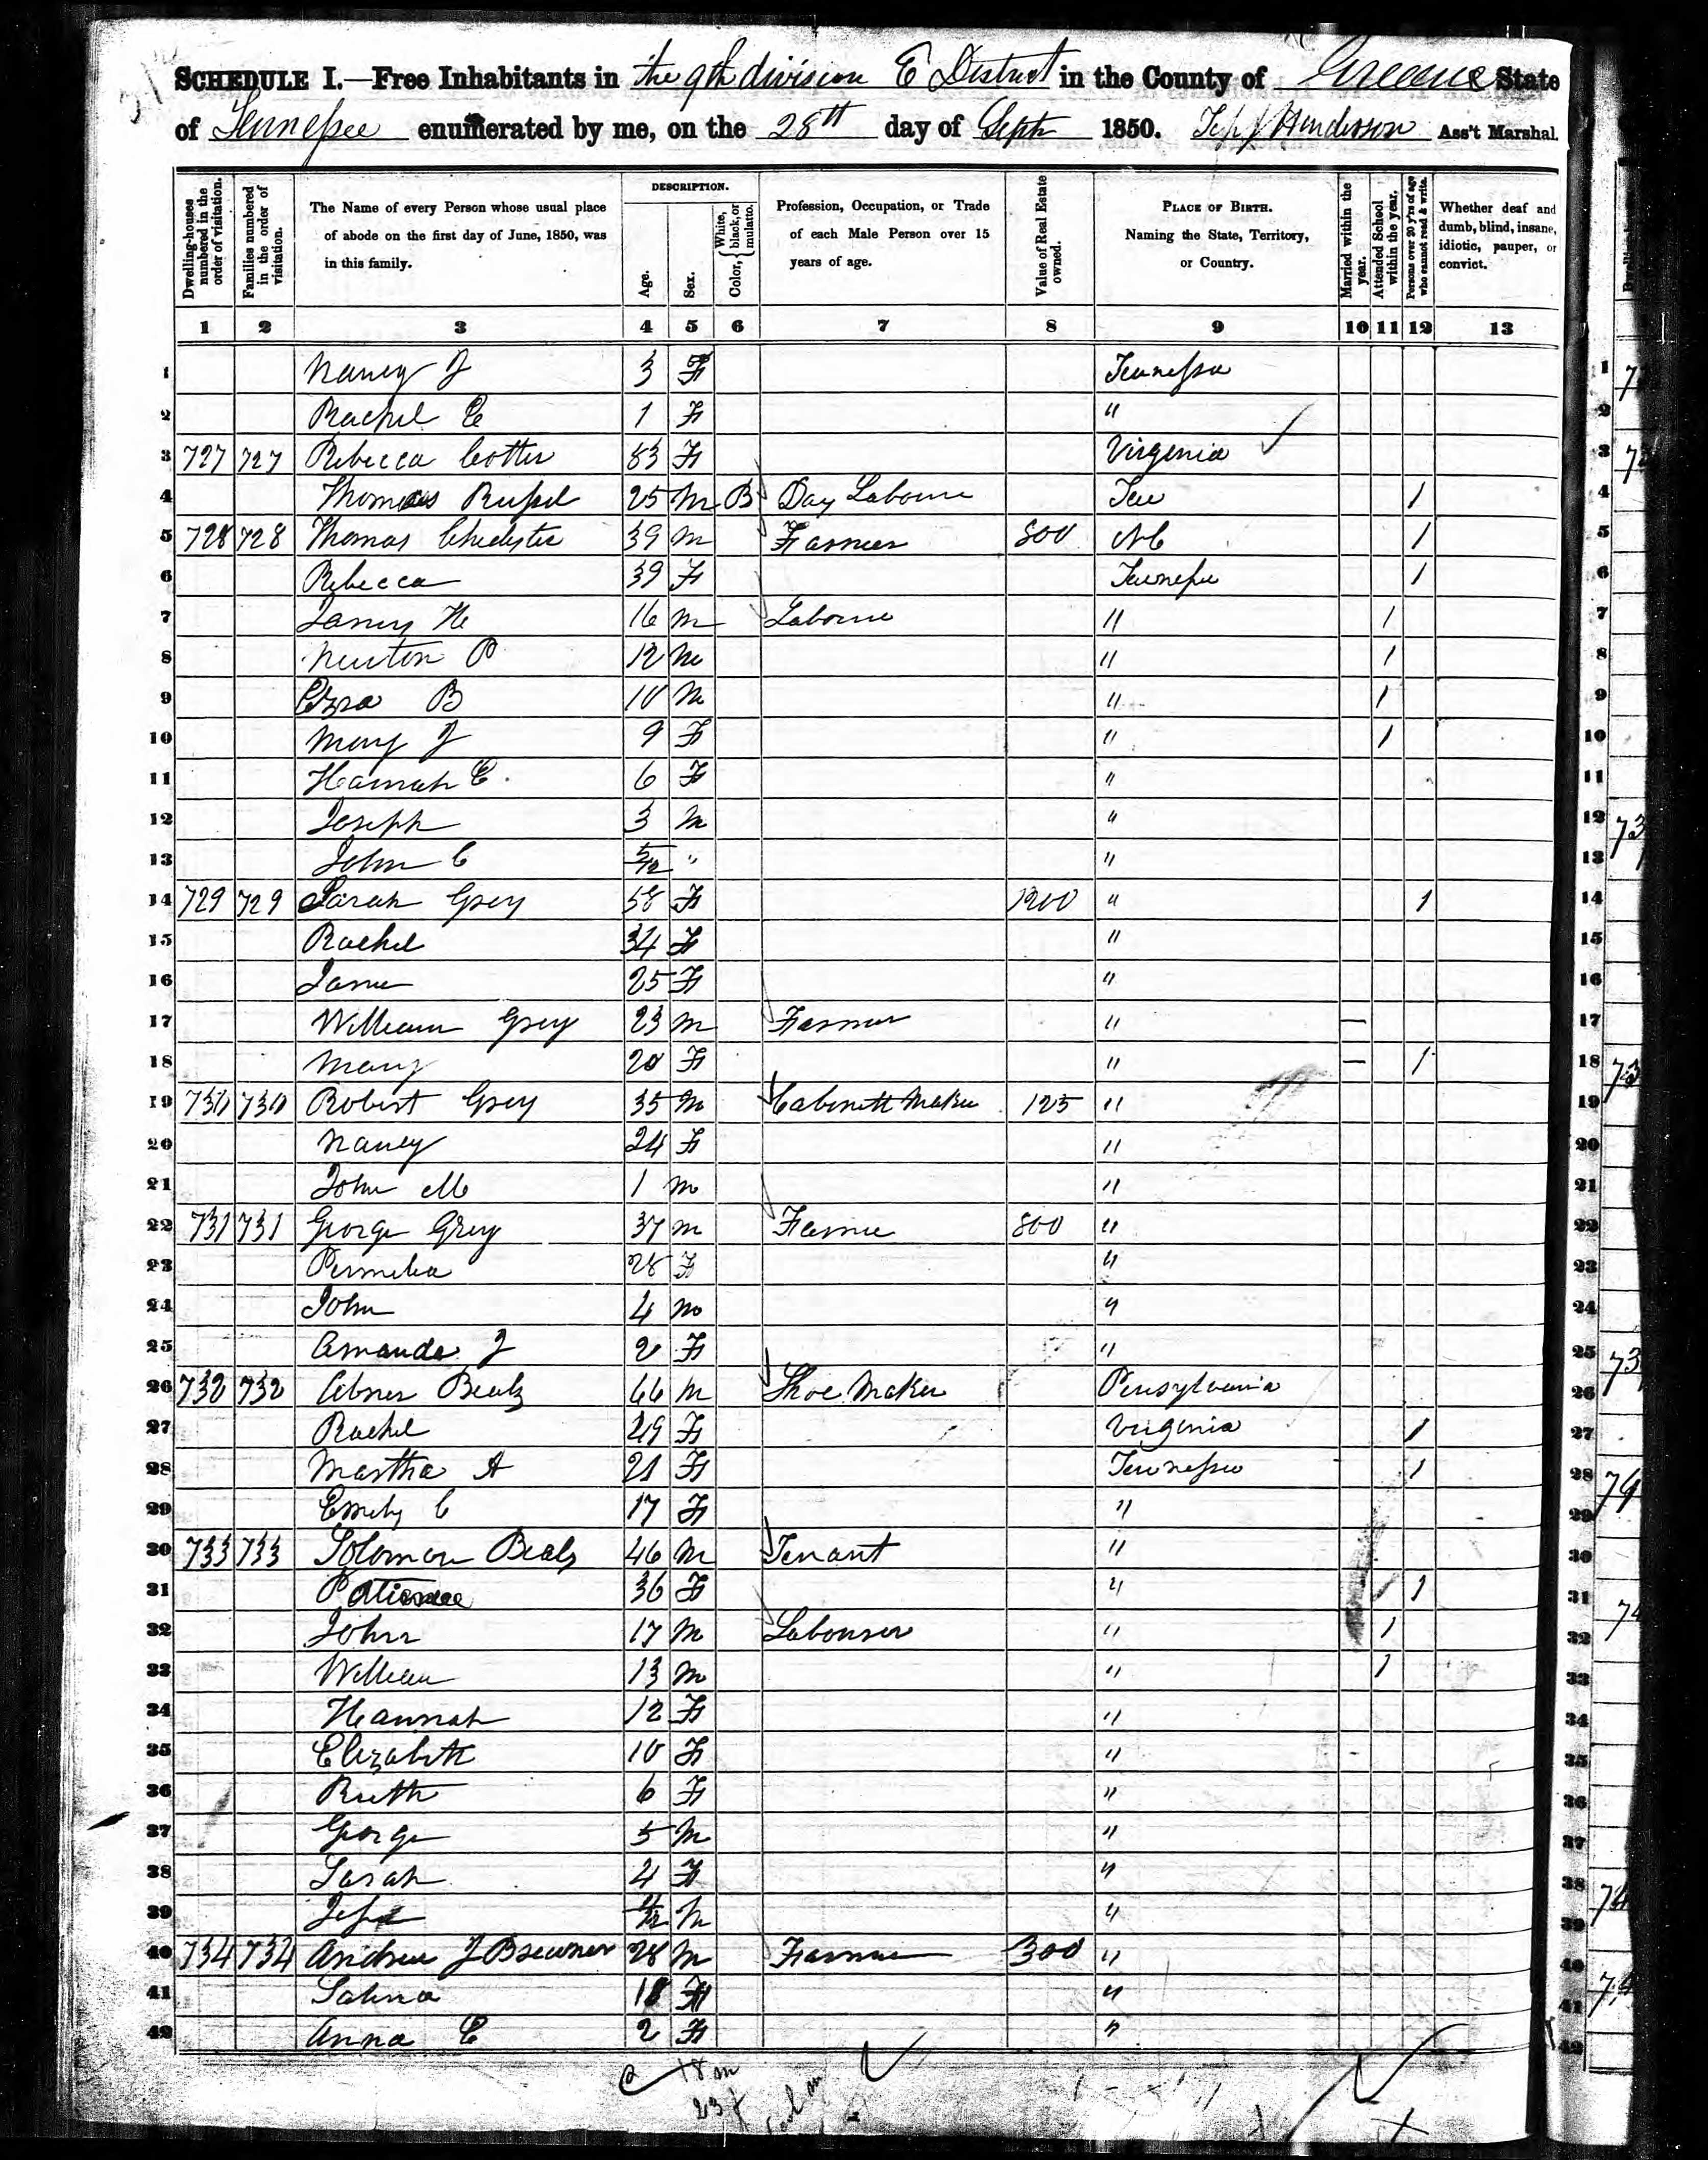 SCHEDULE I.—Free Inhabitants in the 9th division E District in the County of Greene State
of Tennessee enumerated by me, on the 28th day of Sept 1850. Henderson Ass't Marshal.
Dwelling-houses numbered in the order of visitation.
Families numbered in the order of visitation.
The Name of every Person whose usual place of abode on the first day of June, 1850, was in this family.
DESCRIPTION.
Age.
Sex.
Color, { White, black, or mulatto.
Profession, Occupation, or Trade of each Male Person over 15 years of age.
Value of Real Estate owned.
PLACE OF BIRTH. Naming the State, Territory, or Country.
Married within the year.
Attended School within the year.
Persons over 20 y'rs of age who cannot read & write.
Whether deaf and dumb, blind, insane, idiotic, pauper, or convict.
1 2 3 4 5 6 7 8 9 10 11 12 13
1 Nancy J 3 F Tennessee 1
2 Rachel E 1 F " 2
3 727 727 Rebecca Cotter 83 F Virginia 3
4 Thomas Russel 25 M B Day Laborer Ten 1 4
5 728 728 Thomas 39 M Farmer 800 NC 1 5
6 Rebecca 39 F Tennessee 1 6
7 James H 16 M Laborer " 1 7
8 Newton P 12 M " 1 8
9 Ezra B 10 M " 1 9
10 Mary J 9 F " 1 10
11 Hannah E. 6 F " 11
12 Joseph 3 M " 12
13 John C 5/12 " " 13
14 729 729 Sarah Grey 58 F 1200 " 1 14
15 Rachel 34 F " 15
16 Jane 25 F " 16
17 William Grey 23 M Farmer " — 17
18 Mary 20 F " — 1 18
19 730 730 Robert Grey 35 M Cabinett Maker 125 " 19
20 Nancy 24 F " 20
21 John M 1 M " 21
22 731 731 George Grey 37 M Farmer 800 " 22
23 Permelia 28 F " 23
24 John 4 M " 24
25 Amanda J 2 F " 25
26 732 732 Abner Beals 66 M Shoe Maker Pensylvania 26
27 Rachel 49 F Virginia 1 27
28 Martha A 21 F Tennessee 1 28
29 Emily C 17 F " 29
30 733 733 Solomon Beals 46 M Tenant " 30
31 Patience 36 F " 1 31
32 John 17 M Labourer " 1 32
33 William 13 M " 1 33
34 Hannah 12 F " 34
35 Elizabeth 10 F " 35
36 Ruth 6 F " 36
37 George 5 M " 37
38 Sarah 4 F " 38
39 Jesse M " 39
40 734 734 Andrew J Brewner 28 M Farmer 300 " 40
41 18 F " 41
42 Anna E 2 F " 42
18 m
23 f